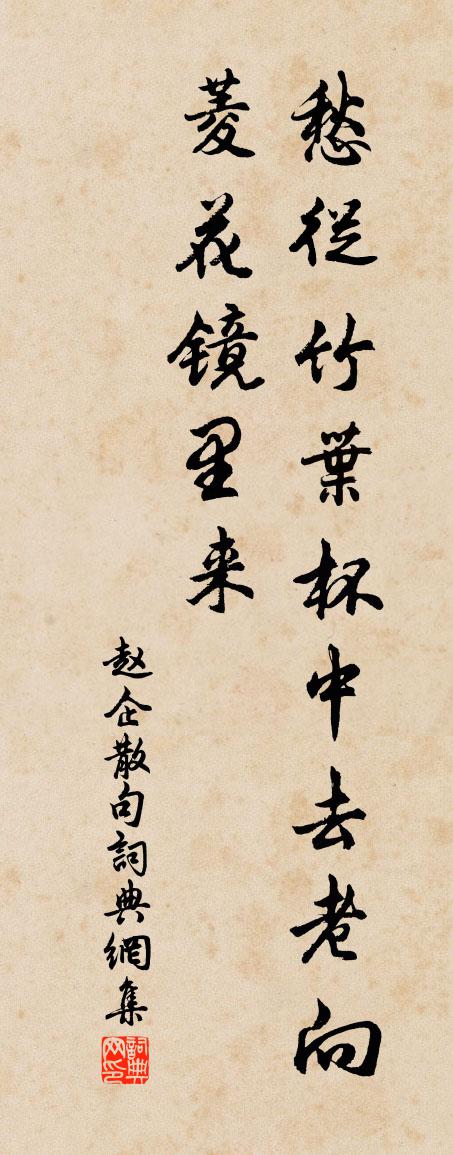 愁從竹葉杯中去老向
菱花鏡里来
赵企散句詞典網集
詞典网印